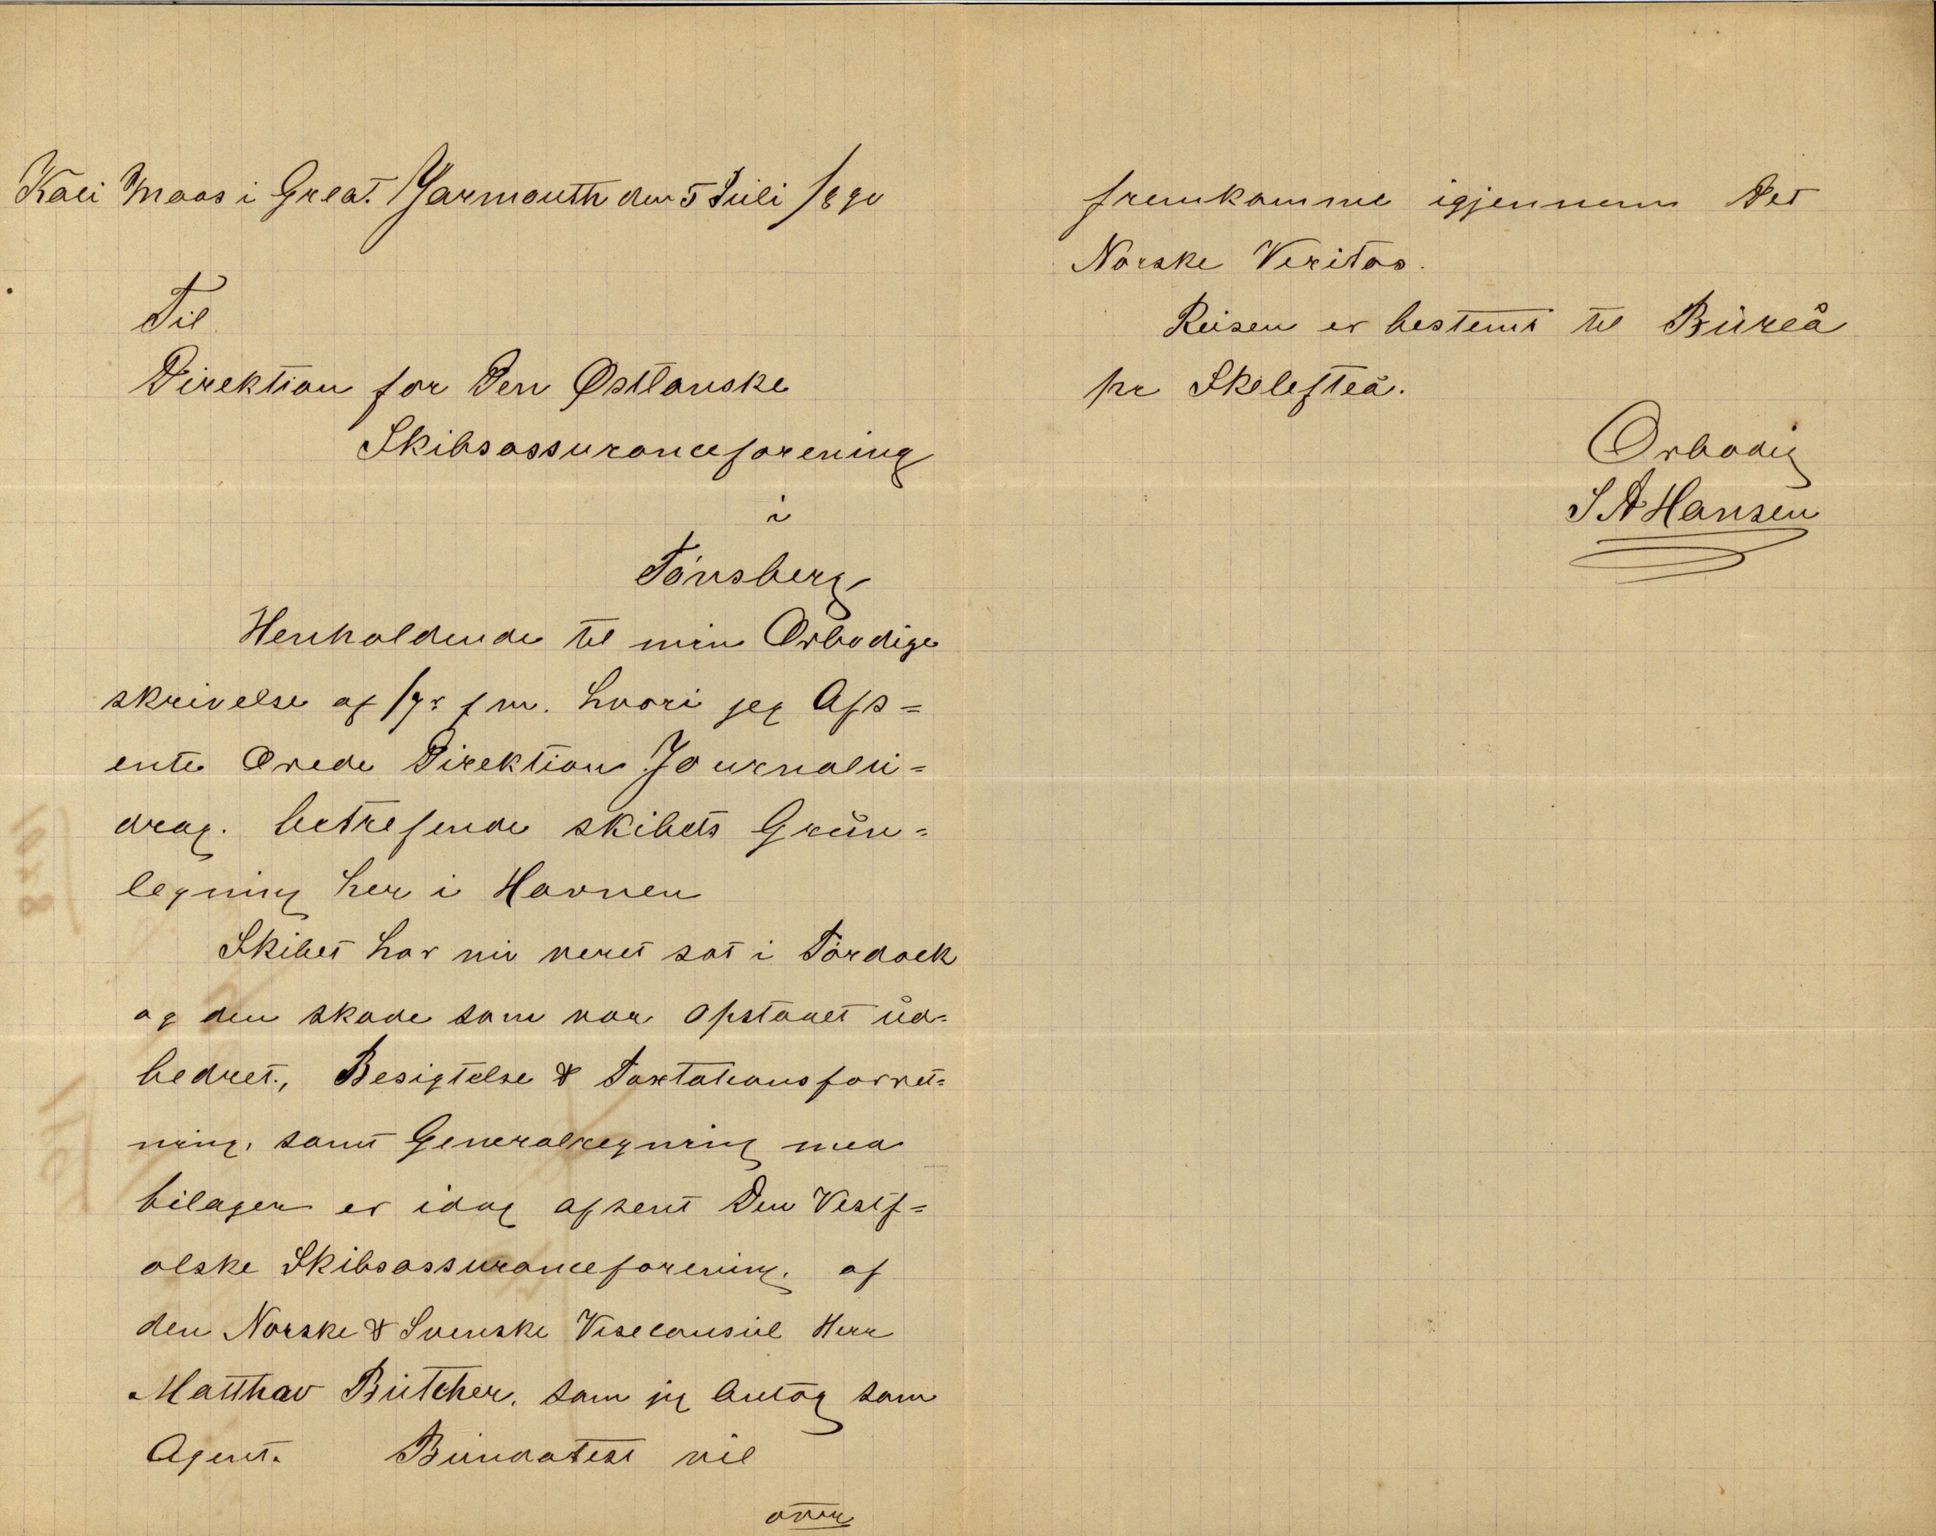 Kali Maas i Great Yarmouth den 5 Juli 1890
Til
Direktion for Den Østlanske
Skibsassuranceforening
i
Tönsberg
Henholdende til min Ørbødige
skrivelse af f m. hvori jeg Afs=
ente Ørede Direktion Journalu=
drag. betrefende skibets Grün=
legning her i Havnen
Skibet har nu veret sat i Tördock
og den skade som var opstaaet üd=
bedret., Besigtelse & Taxtationsforret=
ning, samt Generalregning med
bilager er idag afsent Den Vestf=
olske Skibsassuranceforening. af
den Norske & Svenske Viseconsül Herr
Matthav Bütcher. som jeg antog som
Agent. Bündatest vil
over
fremkomme igjennem Det
Norske Veritas.
Reisen er bestemt til Büreå
pr Skelefteå.
Ørbødig
S A Hansen